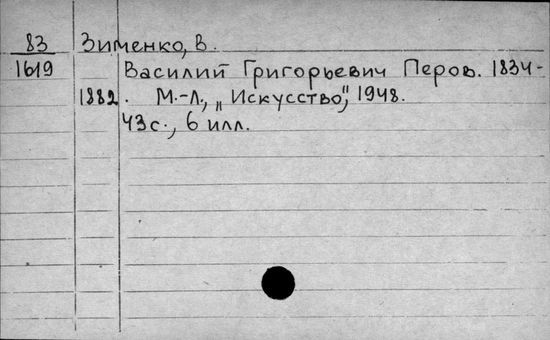 83 Зименко, В.
1619 Василий Григорьевич Перов. 1834-
1882. М.-Л., „Искусство", 1948.
43с., 6 илл.